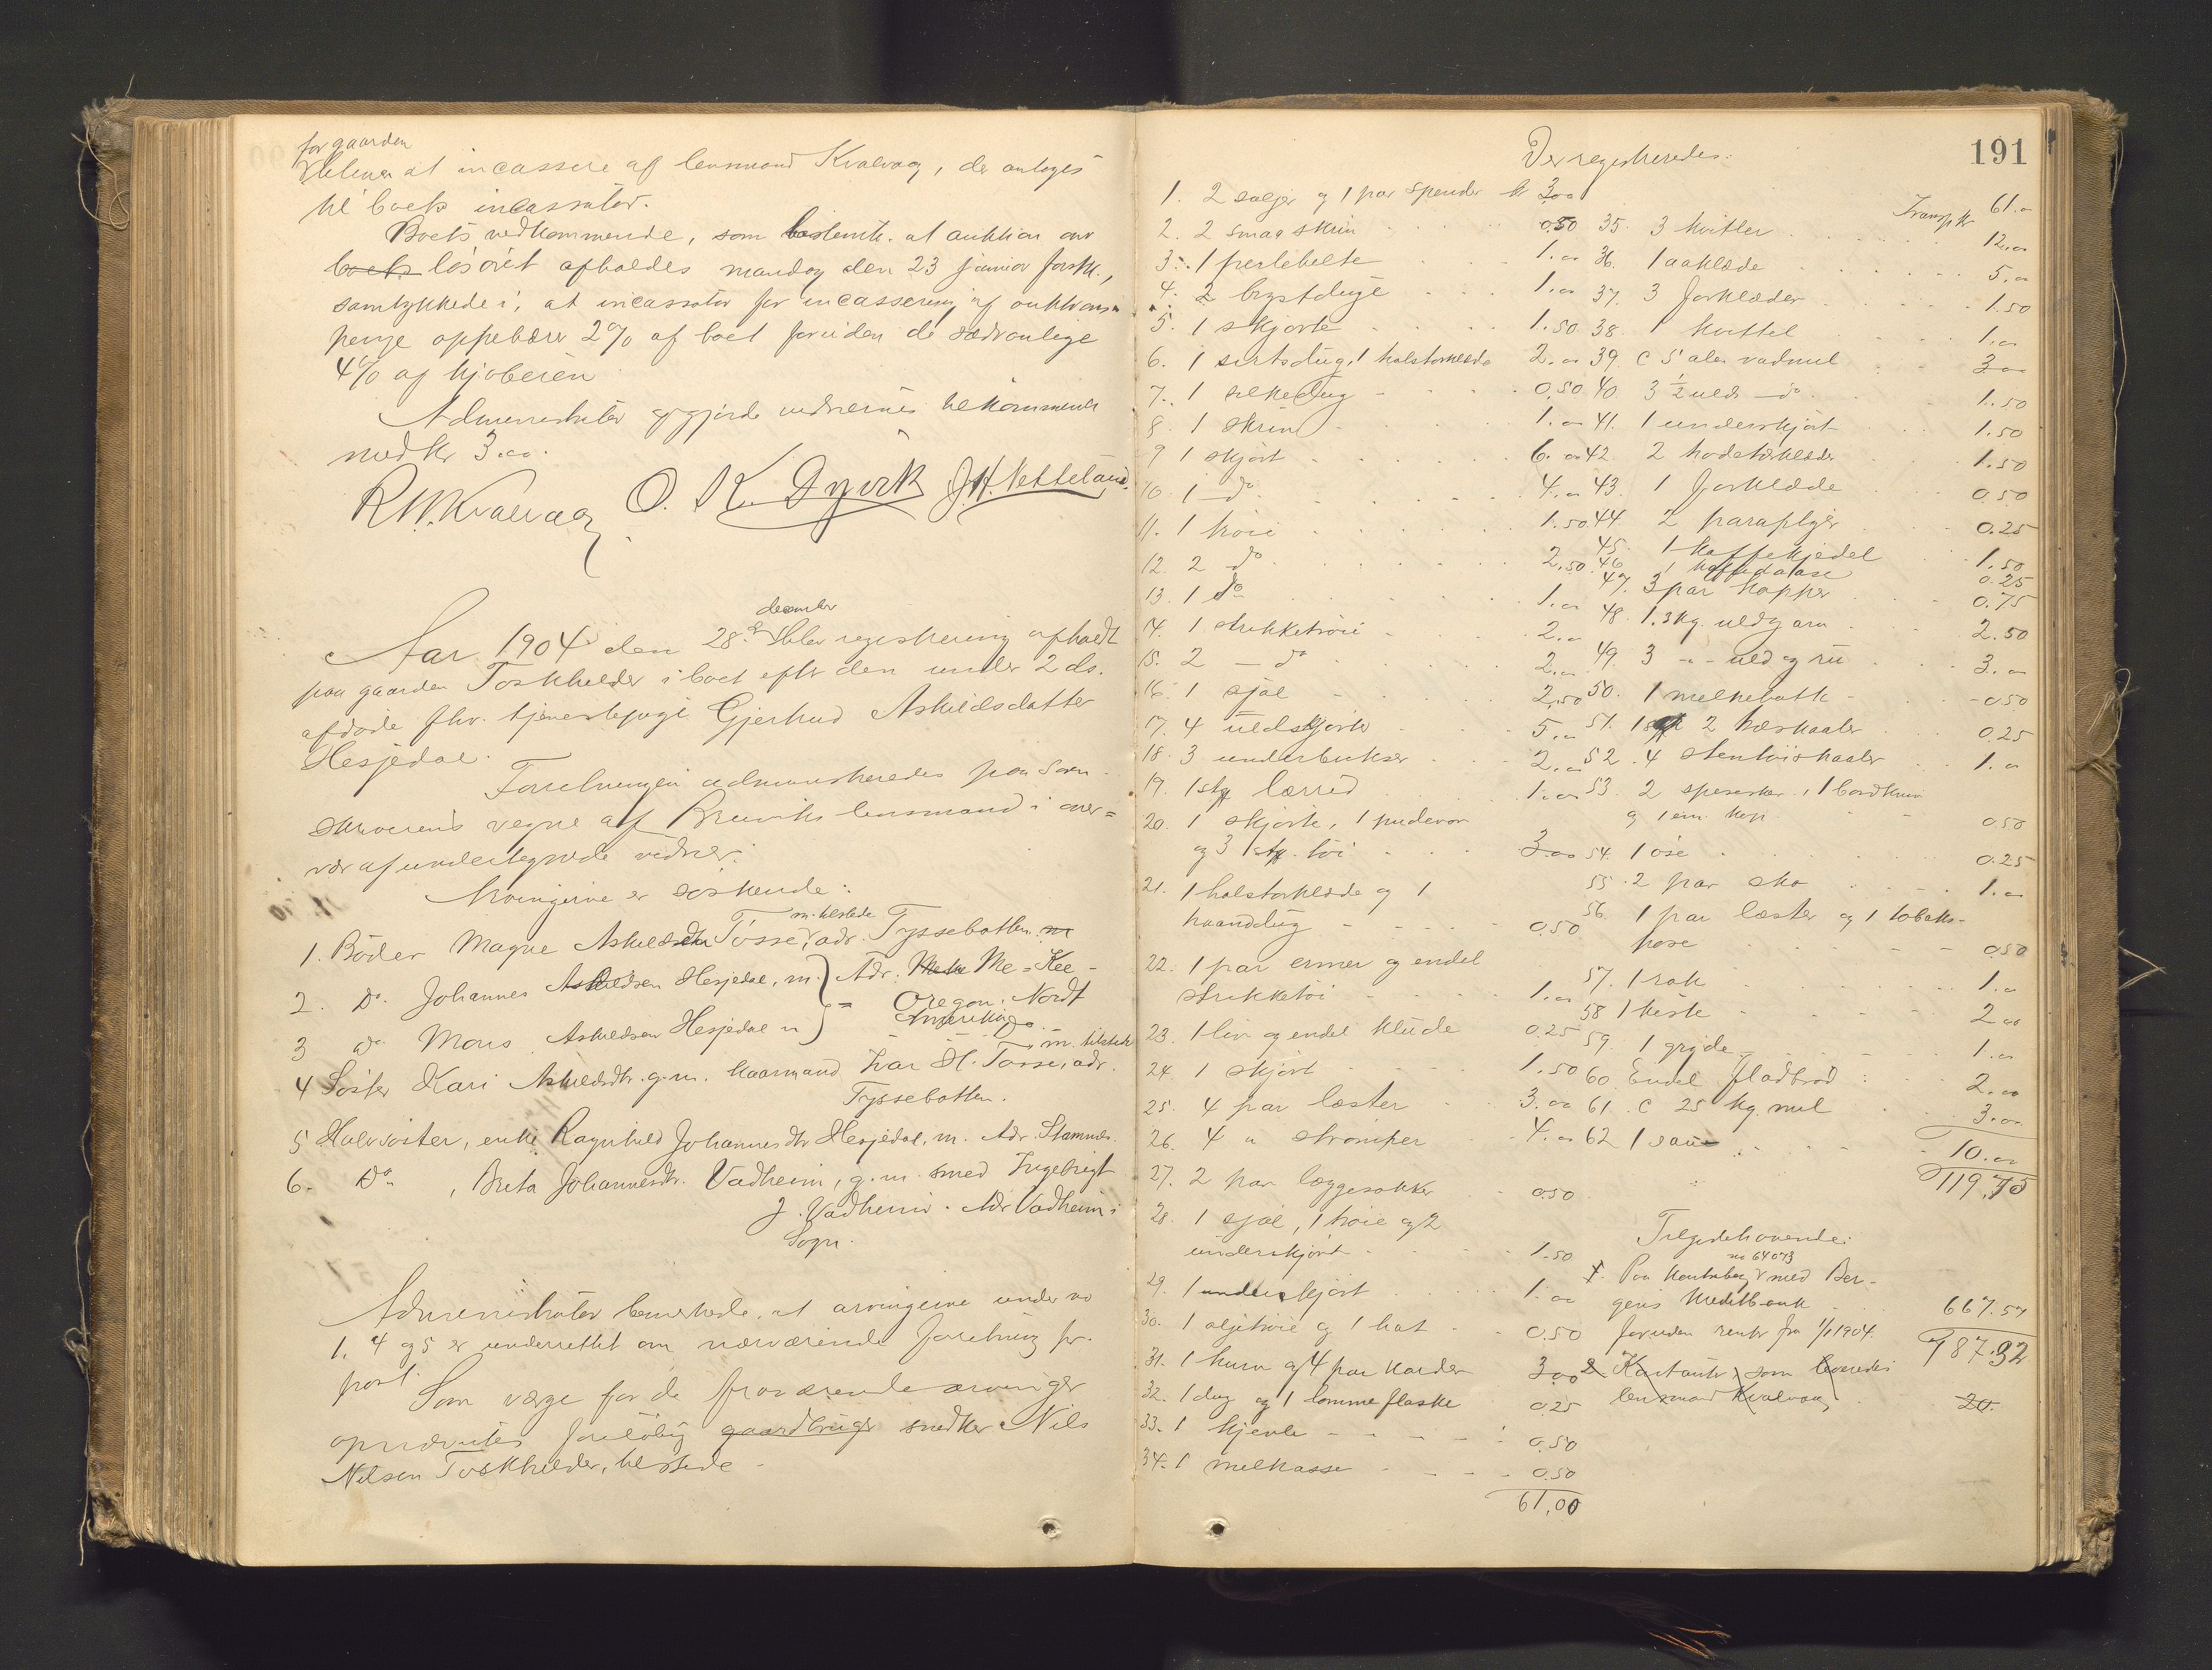 for gaarden
at incassere af lensmand Kvalvaag, der antoges
til boets incassator.
Boets vedkommende, som bestemte at auktion over
boets løsøret afholdes mandag den 23 januar førstk.,
samtykkede i, at incassator for incassering af auktions-
penge oppebærer 2% af boet foruden de sædvanlige
4% af kjøberen
Administrator opgjorde vidnernes tilkommende
med kr 3.00.
R. W. Kvalvaag O. K. Dyvik J. H. Vetteland.
december
Aar 1904 den 28de blev registrering afholdt
paa gaarden Toskhelder i boet efter den under 2 ds.
afdøde fhv. tjenestepige Gjertrud Askildsdatter
Hesjedal.
Forretningen administreredes paa Soren-
skriverens vegne af Bruviks lensmand i over-
vær af undertegnede vidner:
Arvingerne er søskende:
1. Broder Magne Askildsen Tosse, m. tilstede adr. Tyssebotten
2. Do Johannes Askildsen Hesjedal, m. } Adr. Mc-Kee-
Oregon, Nordt
Amerika
3 do Mons Askildsen Hesjedal m
4 Søster Kari Askildsdtr. g.m. kaarmand Ivar H. Tosse, m. tilstede adr.
Tyssebotten.
5 Halvsøster, enke Ragnhild Johannesdtr Hesjedal, m. Adr. Stamnes.
6. Do, Brita Johannesdtr. Vadheim, g.m. smed Ingebrigt
J. Vadheim. Adr Vadheim i
Sogn.
Administrator bemerkede, at arvingerne under no
1, 4 og 5 er underrettet om nærværende forretning pr.
post.
Som værge for de fraværende arvinger
opnævntes foreløbig gaardbruger snedker Nils
Nilsen Toskhelder, tilstede -
191
Der registreredes:
1. 2 søljer og 1 par spender kr 3.00
2. 2 smaa skrin 0.50
3. 1 perlebelte 1.00
4. 2 brystduge 1.00
5. 1 skjorte 1.50
6. 1 sirtsdug, 1 halstørklæde 2.00
7. 1 silkedug 0.50
8. 1 skrin 1.00
9 1 skjørt 6.00
10. 1 do 4.00
11. 1 trøie 1.50
12. 2 do 2.50
13. 1 do 1.00
14. 1 strikketrøie 2.00
15. 2 - do 2.00
16. 1 sjal 2.50
17. 4 uldskjorter 5.00
18. 3 underbukser 2.00
19. 1 stk lærred 1.00
20. 1 skjorte, 1 pudevar
og 3 stk. tøi 3.00
21. 1 halstørklæde og 1
haanddug 0.50
22. 1 par ermer og endel
strikketøi 1.00
23. 1 liv og endel klude 0.25
24. 1 skjørt 1.50
25. 4 par læster 3.00
26. 4 " strømper 4.00
27. 2 par læggesokker 0.50
28. 1 sjal, 1 trøie og 2
underskjørt 1.50
29. 1 underskjørt 1.00
30. 1 oljetrøie og 1 hat 0.50
31. 1 kurv og 4 par karder 3.00
32. 1 dug og 1 lommeflaske 0.25
33. 1 kjevle 0.50
34. 1 melkasse 0.50
61,00
Transp kr 61.00
35. 3 kvitler 12.00
36. 1 aaklæde 5.00
37. 3 forklæder 1.50
38. 1 kvittel 1.00
39 c 5 alen vadmel 3.00
40. 3 ½ uldt - do 1.50
41. 1 underskjørt 1.50
42. 2 hodetørklæder 1.50
43. 1 forklæde 0.50
44. 2 paraplyer 0.25
45. 1 kaffekjedel 1.50
46. 1 kaffedaase 0.25
47. 3 par kopper 0.75
48. 1.3 kg. uldgarn 2.50
49. 3 -"- uld og ru 3.00
50. 1 melkebøtte 0.50
51. 2 træskaaler 0.25
52. 4 stentøiskaaler 1.00
53. 2 speseskeer, 1 bordkniv
og 1 em. kop 0.50
54. 1 øse 0.25
55. 2 par sko 1.00
56. 1 par læster og 1 tobaks-
pose 0.50
57. 1 rok 1.00
58 1 kiste 2.00
59. 1 gryde 1.00
60. Endel fladbrød 2.00
61. c 25 kg. mel 3.00
62 1 sau 10.00
119,75
Tilgodehavende:
no 64073
1. Paa kontrabog med Ber-
gens Kreditbank 667.57
foruden renter fra 1/1 1904.
787.32
2. Kontanter, som leveredes
lensmand Kvalvaag 20.